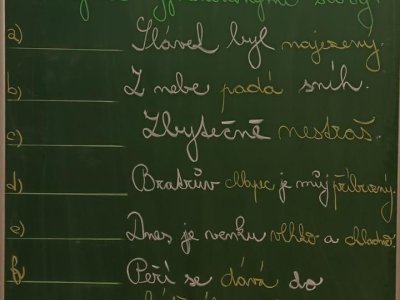 a) Slávek byl naježený.
b) Z nebe padá sníh.
c) Zbytečně nestraš.
d) Bratrův chlapec je můj příbuzný.
e) Dnes je venku vlhko a chladno.
f) Peří se dává do